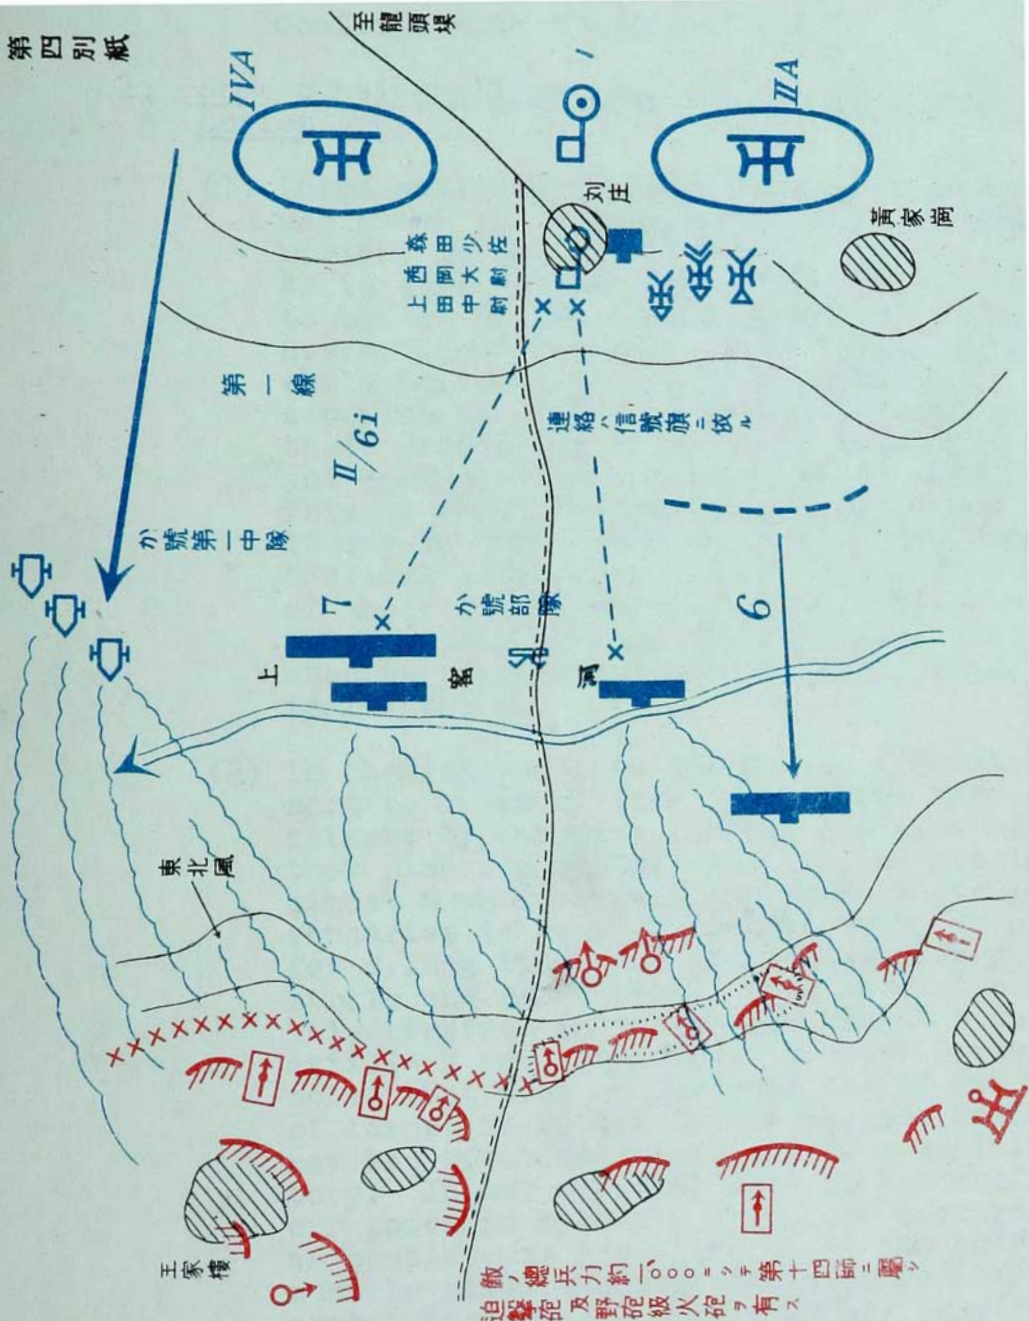 第四別紙
至龍頭埧
IVA
IIA
刘庄
黃家崗
森田少佐
西岡大尉
上田中尉
第一線
II/6i
連絡ハ信號旗ニ依ル
か號第一中隊
7
か號部隊
6
上窰河
東北風
王家樓
敵ノ總兵力約一、〇〇〇ニシテ第十四師ニ屬シ
迫擊砲及野砲級火砲ヲ有ス